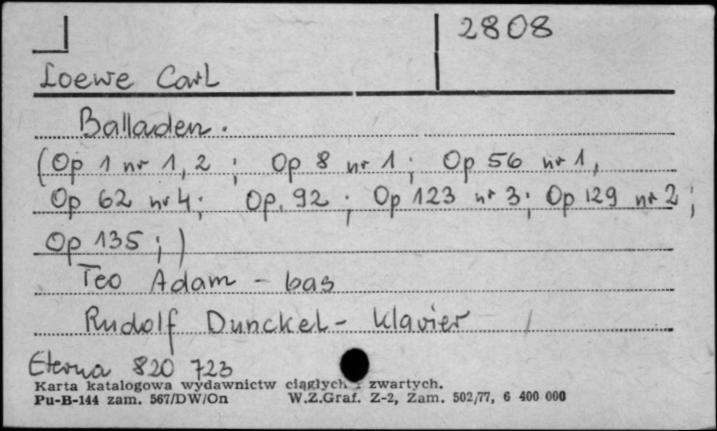 2808
Loewe Carl
Balladen.
(Op 1 nr 1, 2 ; Op 8 nr 1 ; Op 56 nr 1,
Op 62 nr 4 ; Op. 92 ; Op 123 nr 3 ; Op 129 nr 2 ;
Op 135 ; )
Teo Adam - bas
Rudolf Dunckel - Klavier
Eterna 820 723
Karta katalogowa wydawnictw ciągłych i zwartych.
Pu-B-144 zam. 567/DW/On W.Z.Graf. Z-2, Zam. 502/77, 6 400 000